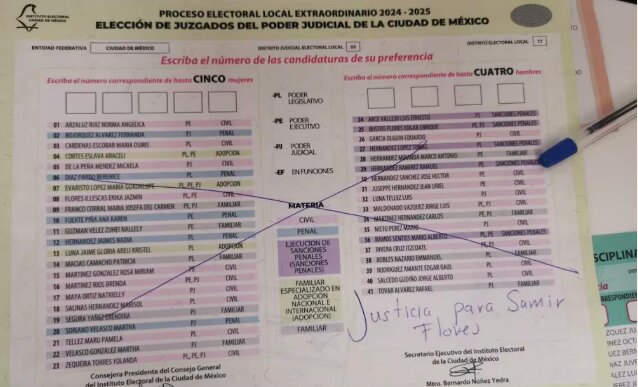 PROCESO ELECTORAL LOCAL EXTRAORDINARIO 2024 - 2025
ELECCIÓN DE JUZGADOS DEL PODER JUDICIAL DE LA CIUDAD DE MÉXICO
ENTIDAD FEDERATIVA CIUDAD DE MÉXICO DISTRITO JUDICIAL ELECTORAL LOCAL 05 DISTRITO ELECTORAL LOCAL 17
Escriba el número de las candidaturas de su preferencia
Escriba el número correspondiente de hasta CINCO mujeres
01 ARZALUZ RUIZ NORMA ANGELICA PE CIVIL
02 BOJORQUEZ ALVAREZ FERNANDA PJ PENAL
03 CARDENAS ESCOBAR MARIA OSIRIS PL CIVIL
04 CORTES ESLAVA ARACELI PL, PJ ADOPCION
05 DE LA PEÑA MENDEZ MICAELA PJ CIVIL
06 DIAZ PARDO BERENICE PL PENAL
07 EVARISTO LOPEZ MARIA GUADALUPE PE, PJ ADOPCION
08 FLORES ILLESCAS ERIKA JAZMIN PL CIVIL
09 FRANCO CORRAL MARIA JOSEFA DEL CARMEN PL, PJ FAMILIAR
10 FUERTE PIÑA ANA KAREN PE PENAL
11 GUZMAN VELEZ ZUHEI NALLELY PE FAMILIAR
12 HERNANDEZ JAIMES PJ PENAL
13 LUNA JAIME GLORIA ABELI KRISTEL PJ ADOPCION
14 MACIAS CAMACHO PATRICIA PL FAMILIAR
15 MARTINEZ GONZALEZ ROSA MIRIAM PE CIVIL
16 MARTINEZ RIOS BRENDA PE, PJ CIVIL
17 MAYA ORTIZ PL CIVIL
18 SALINAS HERNANDEZ MARISOL PL CIVIL
19 SEGURA YAÑEZ ERENDIRA PJ FAMILIAR
20 SORIANO VELASCO MARTHA PJ PENAL
21 TELLEZ MARU PAMELA PL CIVIL
22 VELASCO GONZALEZ MARTHA PE, PJ FAMILIAR
23 ZEQUEIRA TORRES YOLANDA PL, PE, PJ CIVIL
Consejera Presidenta del Consejo General
del Instituto Electoral de la Ciudad de México
-PL PODER
LEGISLATIVO
-PE PODER
EJECUTIVO
-PJ PODER
JUDICIAL
-EF EN FUNCIONES
MATERIA
CIVIL
PENAL
EJECUCION DE
SANCIONES
PENALES
(SANCIONES
PENALES)
FAMILIAR
ESPECIALIZADO EN
ADOPCION
NACIONAL E
INTERNACIONAL
(ADOPCION)
FAMILIAR
Escriba el número correspondiente de hasta CUATRO hombres
24 ARCE VALLEJO LUIS ERNESTO PJ SANCIONES PENALES
25 BUSTOS FLORES EDGAR ENRIQUE PE, PJ SANCIONES PENALES
26 GARCIA OLGUIN EDUARDO PJ CIVIL
27 HERNANDEZ LOPEZ TOMAS PJ SANCIONES PENALES
28 HERNANDEZ MIRANDA MARCO ANTONIO PE FAMILIAR
29 HERNANDEZ RAMIREZ MANUEL PE SANCIONES PENALES
30 HERNANDEZ SANCHEZ JOSE HECTOR PE CIVIL
31 JUSEPPE HERNANDEZ JEAN URIEL PL CIVIL
32 LUNA TELLEZ LUIS PL CIVIL
33 MALDONADO VAZQUEZ JORGE LUIS PL, PJ CIVIL
34 MARTINEZ HERNANDEZ CARLOS PE FAMILIAR
35 NIETO PEREZ MARIO PJ CIVIL
36 RAMOS SENTIES MARIO ALBERTO PL SANCIONES PENALES
37 RIVERA CRUZ ITZCOATL PL, PJ CIVIL
38 ROBLES NAZARIO EMMANUEL PE FAMILIAR
39 RODRIGUEZ AMANTE EDGAR RAUL PL CIVIL
40 SALCEDO GUDIÑO JORGE ALBERTO PE CIVIL
41 TOVAR ALVAREZ RAFAEL PJ FAMILIAR
Justicia para Samir
Flores
Secretario Ejecutivo del Instituto Electoral
de la Ciudad de México
Mtro. Bernardo Núñez Yedra